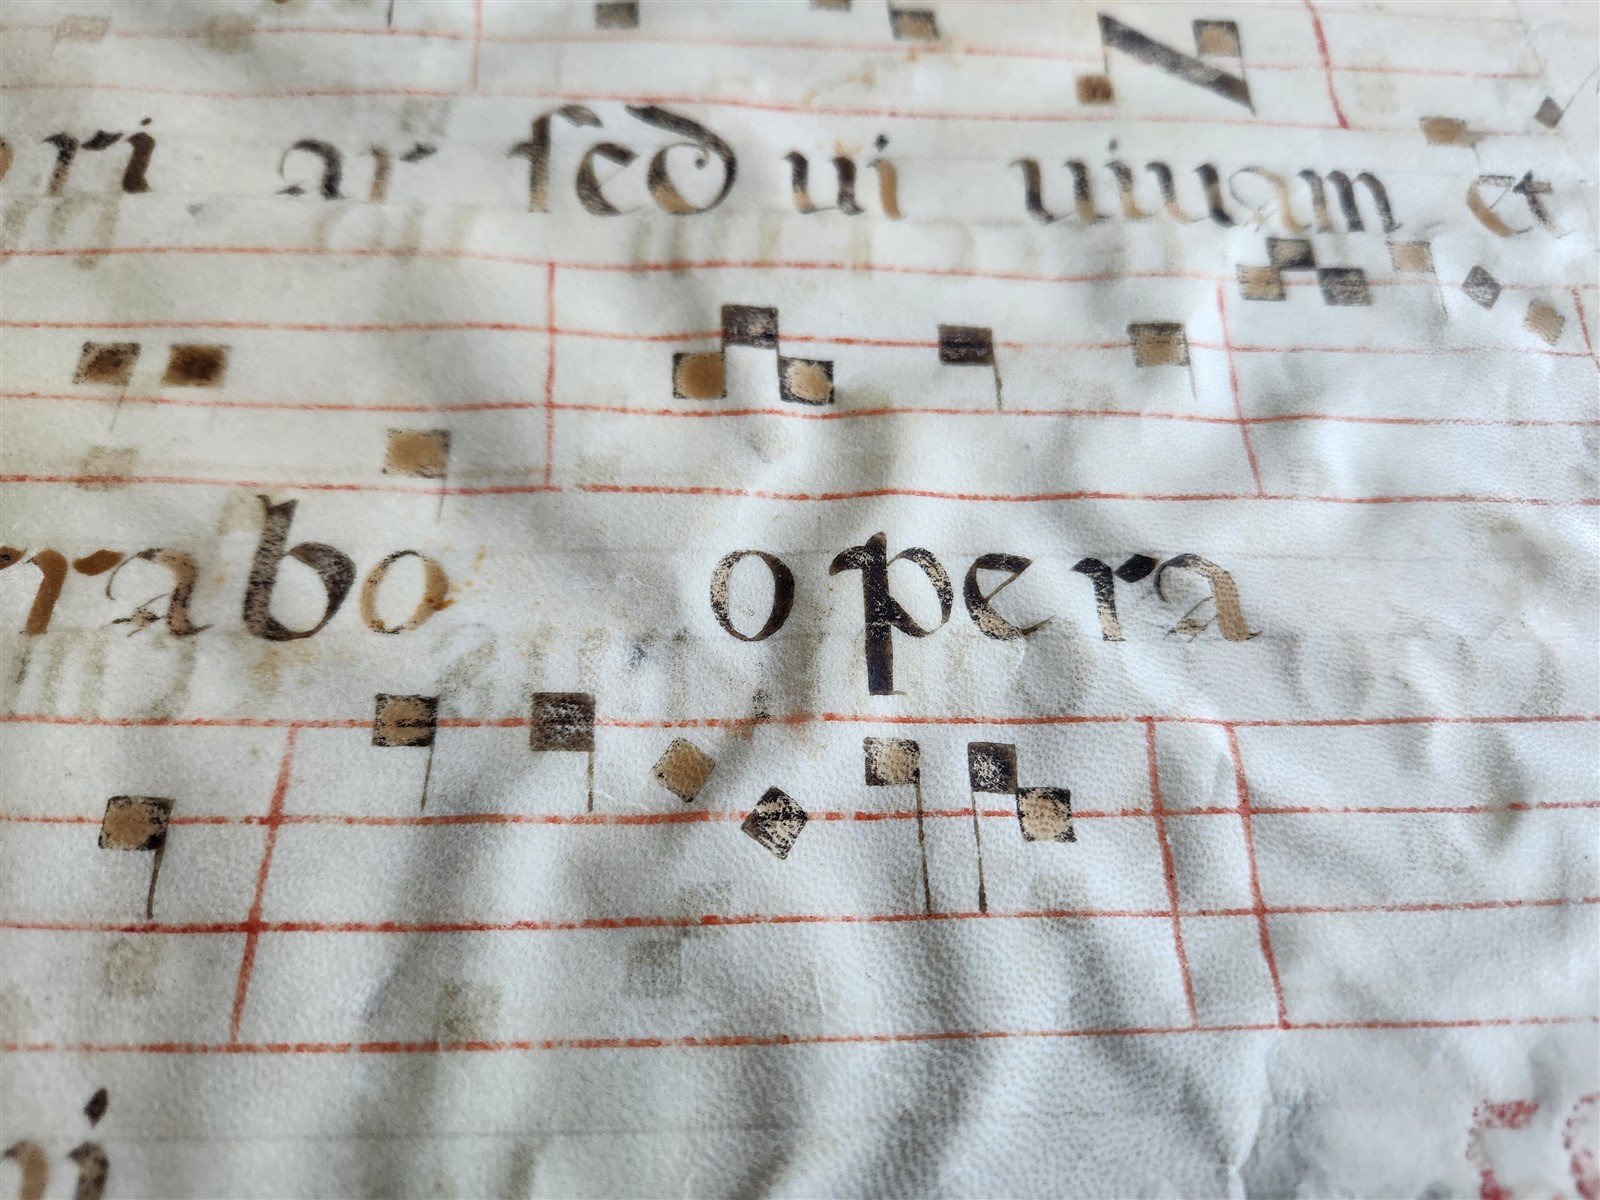 ri ar sed ui uiuam et
rabo opera
ni